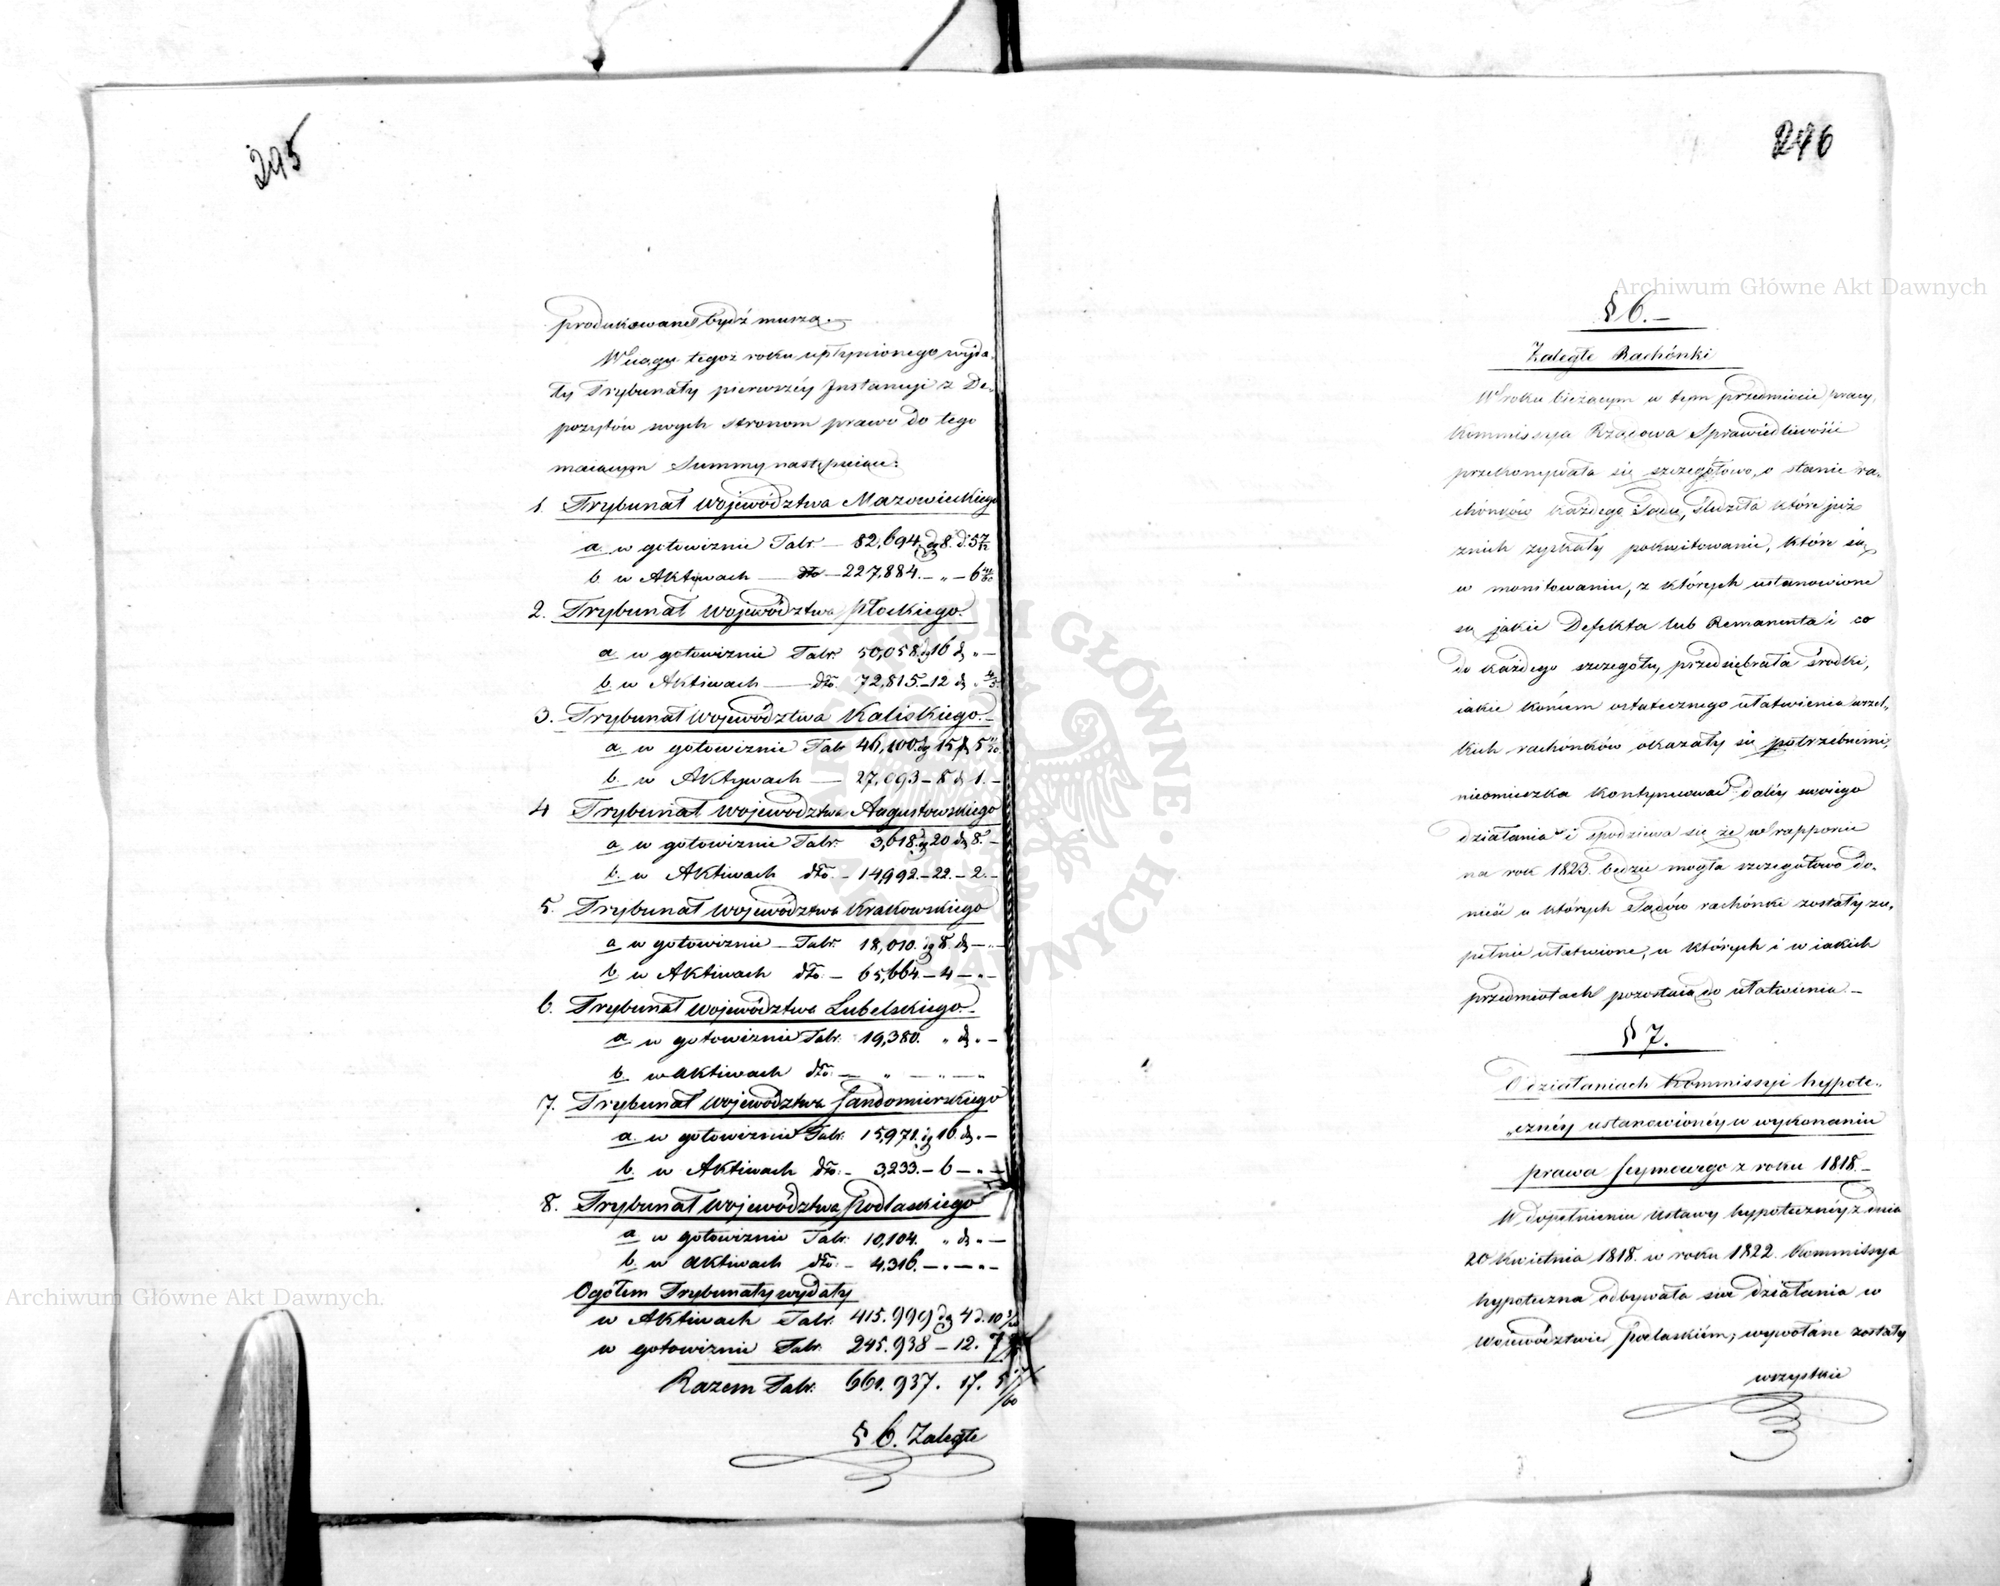 295
produkowane bydź muszą.—
W ciągu tegoż roku upłynionego wyda-
ły Trybunały pierwszéy Instancyi z De-
pozytów swych stronom prawo do tego
maiącym Summy następuiące:
1. Trybunał Województwa Mazowieckiego
a. w gotowiznie Talr. — 82,694. dg 8. d. 5
b. w Aktywach — dto — 227,884. — „ — 6
2. Trybunał Województwa Płockiego.
a w gotowiznie Talr. 50,058. dg 16 d „ —
b. w Aktiwach — dto. 72,815 — 12 d „
3. Trybunał Województwa Kaliskiego. —
a w gotowiznie Talr 46,100. dg 15 d 5
b. w Aktywach — 27,093 — 8 d 1. —
4 Trybunał Województwa Augustowskiego
a w gotowiznie Talr. 3,618. dg 20 d 8. —
b. w Aktiwach dto. — 14,992. — 22. — 2. —
5. Trybunał Województwa Krakowskiego
a w gotowiznie — Talr. 18,010. dg 8. d — „ —
b. w Aktiwach dto. — 65,664 — 4 — „ —
6. Trybunał Województwa Lubelskiego. —
a w gotowiznie Talr. 19,380. „ d „ —
b. w Aktiwach dto. — „ — „ — „ —
7. Trybunał Województwa Sandomierskiego
a. w gotowiznie Talr. 15,971. dg 16. d „ —
b. w Aktiwach dto. — 3,233. — 6 — „ —
8. Trybunał Województwa Podlaskiego
a w gotowiznie Talr. 10,104. „ d „ —
b. w Aktiwach dto. — 4,316. — „ — „ —
Ogółem Trybunały wydały
w Aktiwach Talr. 415.999 dg 4 d. 10
w gotowiznie Talr. 245.938 — 12. 7
Razem Talr. 661.937. 17. 5
§ 6. Zaległe
296
§ 6. —
Zaległe Rachónki
W roku bieżącym w tym przedmiocie pracy,
Kommissya Rządowa Sprawiedliwości
przekonywała się szczegółowo, o stanie ra-
chónków każdego Sądu, śledziła które już
z nich zyskały pokwitowanie, które są
w monitowaniu, z których ustanowione
są jakie Defekta lub Remanenta i co
do każdego szczegółu, przedsiębrała środki,
iakie końcem ostatecznego ułatwienia wszel-
kich rachónków okazały się potrzebnemi,
nieomieszka kontynuować daléy swoiego
działania i spodziewa się że w rapporcie
na rok 1823. będzie mogła szczegółowo do-
nieść w których Sądów rachónki zostały zu-
pełnie ułatwione, w których i w iakich
przedmiotach pozostaią do ułatwienia. —
§ 7.
O działaniach Kommissyi hypote-
cznéy ustanowionéy w wykonaniu
prawa Seymowego z roku 1818. —
W dopełnieniu Ustawy hypotecznéy z dnia
20 Kwietnia 1818. w roku 1822. Kommissya
hypoteczna odbywała swe działania w
Województwie Podlaskiém; wywołane zostały
wszystkie
Archiwum Główne Akt Dawnych
Archiwum Główne Akt Dawnych.